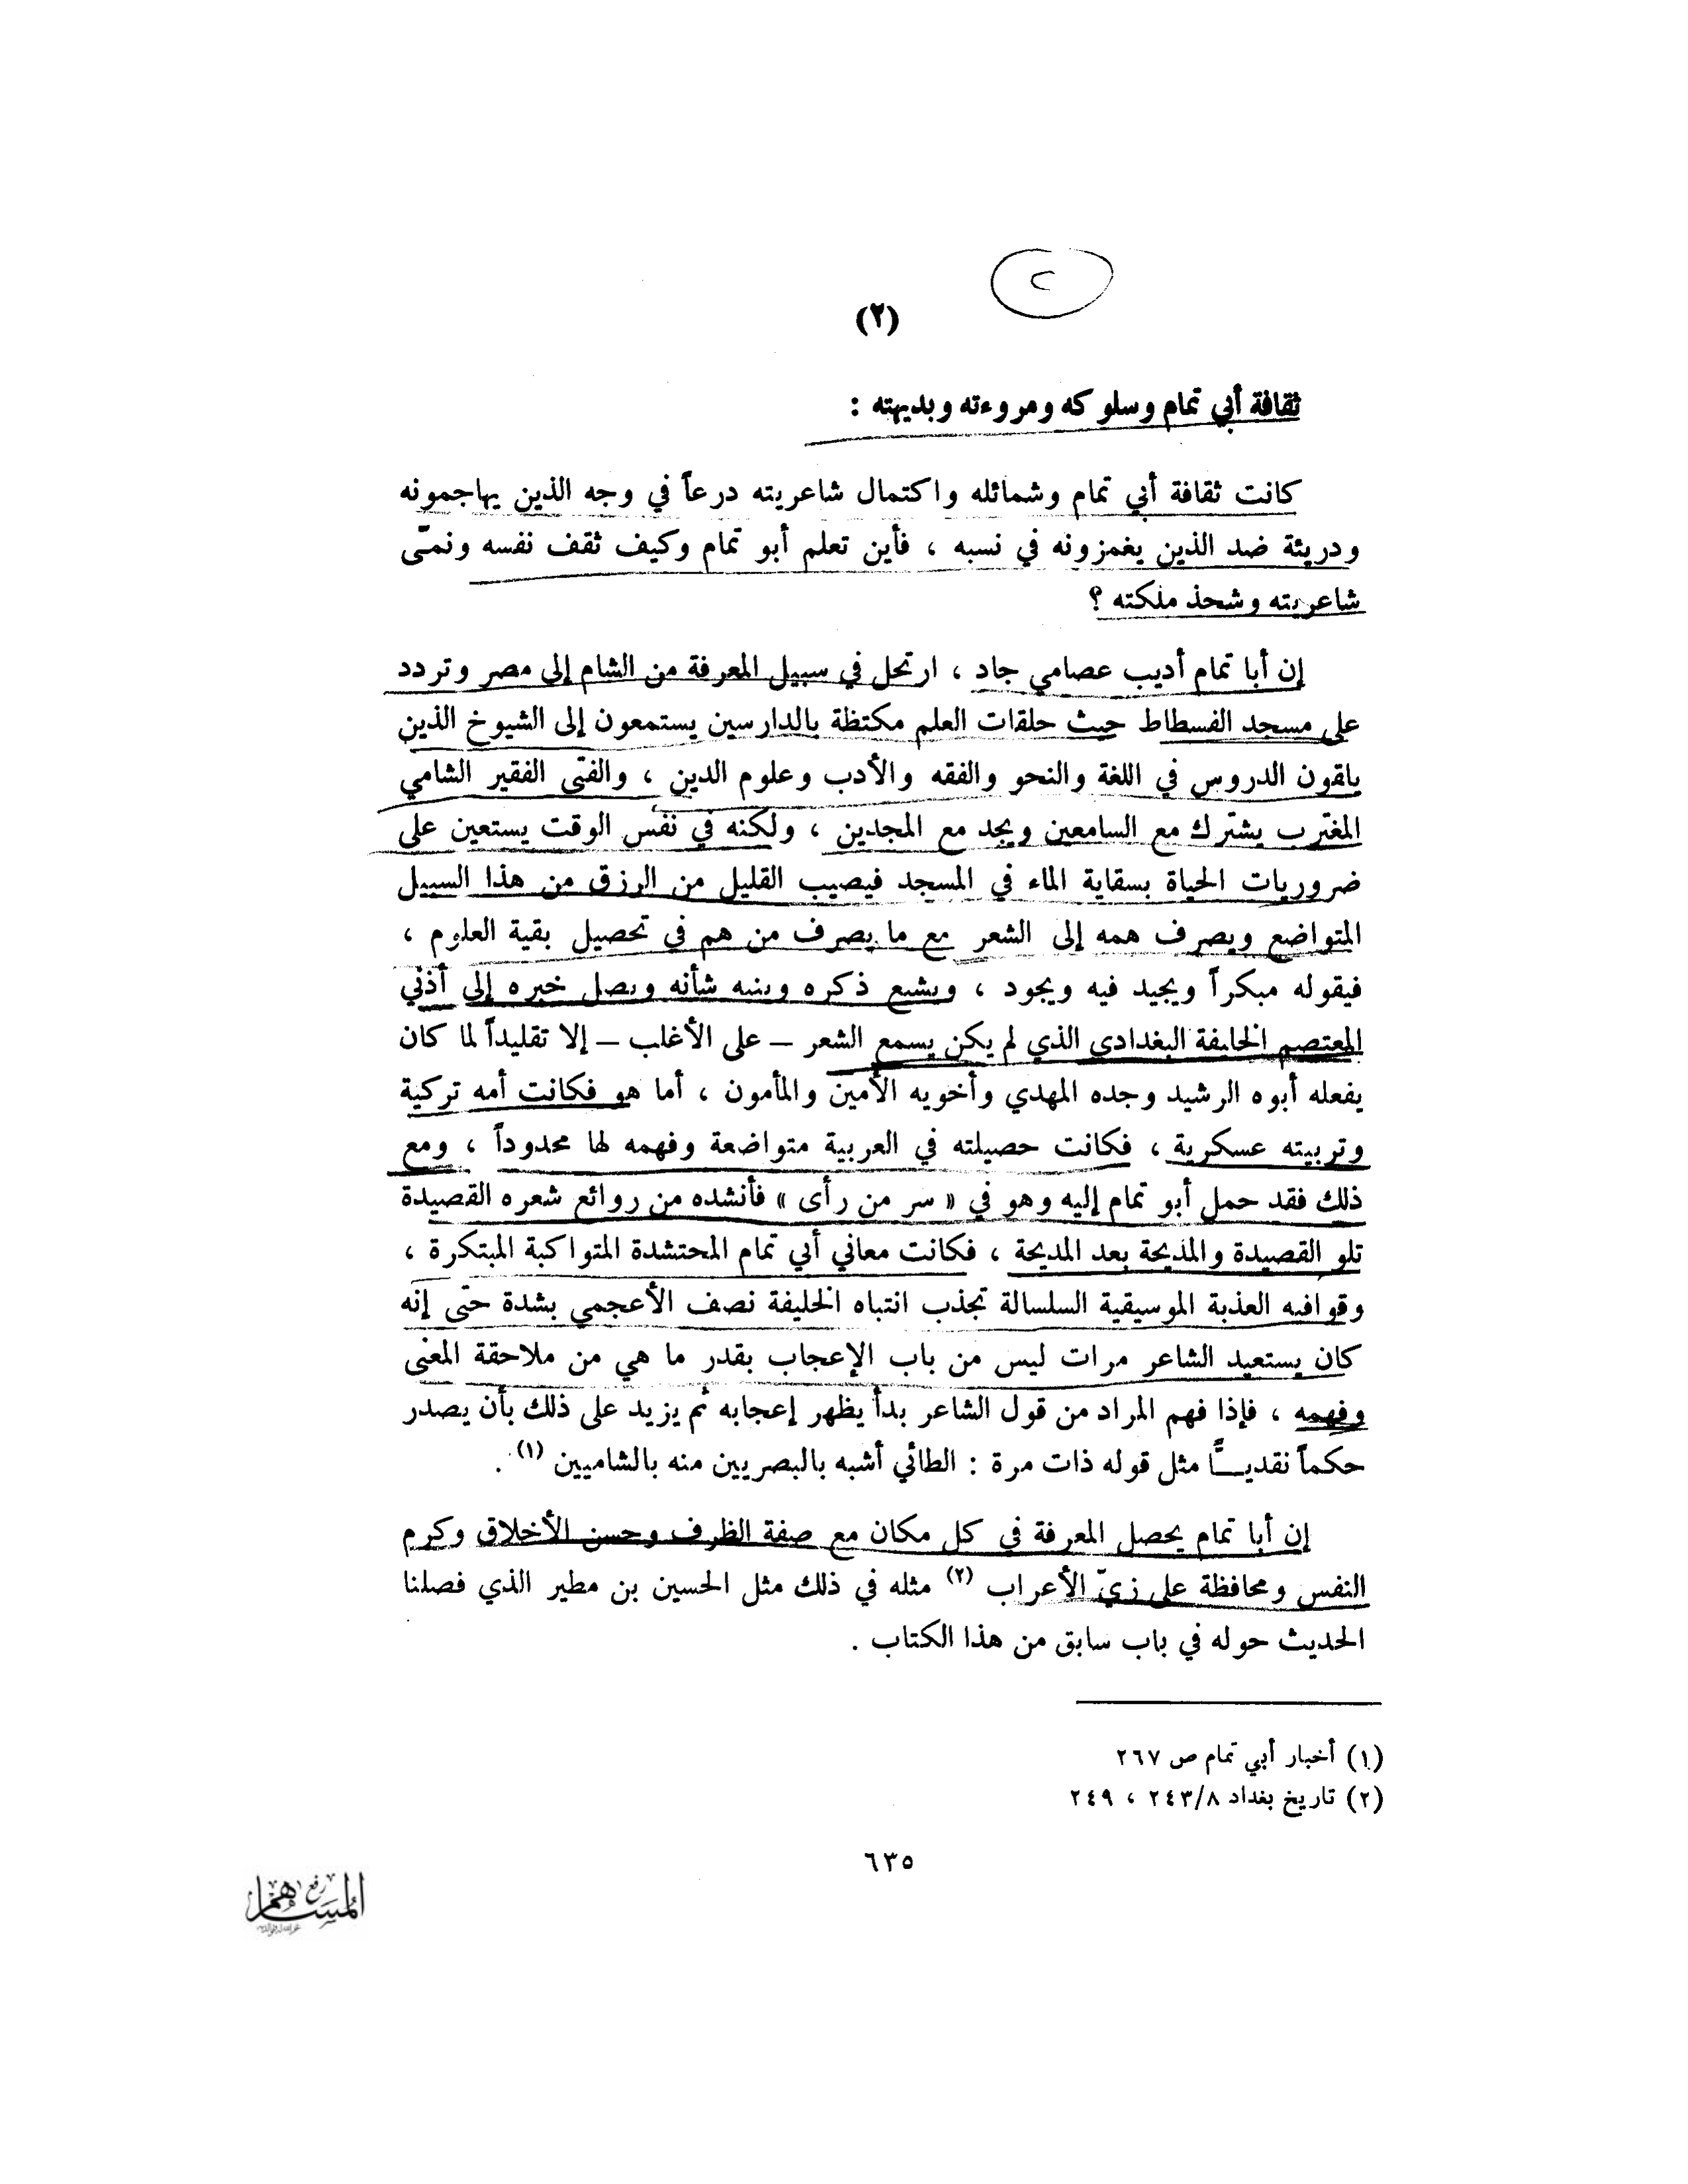 (٢)
ثقافة أبي تمام وسلوكه ومروءته وبديهته :
كانت ثقافة أبي تمام وشمائله واكتمال شاعريته درعاً في وجه الذين يهاجمونه
ودريئة ضد الذين يغمزونه في نسبه ، فأين تعلم أبو تمام وكيف ثقف نفسه ونمّى
شاعريته وشحذ ملكته ؟
إن أبا تمام أديب عصامي جاد ، ارتحل في سبيل المعرفة من الشام إلى مصر وتردد
على مسجد الفسطاط حيث حلقات العلم مكتظة بالدارسين يستمعون إلى الشيوخ الذين
يلقون الدروس في اللغة والنحو والفقه والأدب وعلوم الدين ، والفتى الفقير الشامي
المغترب يشترك مع السامعين ويجد مع المجدين ، ولكنه في نفس الوقت يستعين على
ضروريات الحياة بسقاية الماء في المسجد فيصيب القليل من الرزق من هذا السبيل
المتواضع ويصرف همه إلى الشعر مع ما يصرف من هم في تحصيل بقية العلوم ،
فيقوله مبكراً ويجيد فيه ويجود ، ويشيع ذكره وينبه شأنه ويصل خبره إلى أذني
المعتصم الخليفة البغدادي الذي لم يكن يسمع الشعر – على الأغلب – إلا تقليداً لما كان
يفعله أبوه الرشيد وجده المهدي وأخويه الأمين والمأمون ، أما هو فكانت أمه تركية
وتربيته عسكرية ، فكانت حصيلته في العربية متواضعة وفهمه لها محدوداً ، ومع
ذلك فقد حمل أبو تمام إليه وهو في « سر من رأى » فأنشده من روائع شعره القصيدة
تلو القصيدة والمديحة بعد المديحة ، فكانت معاني أبي تمام المحتشدة المتواكبة المبتكرة ،
وقوافيه العذبة الموسيقية السلسالة تجذب انتباه الخليفة نصف الأعجمي بشدة حتى إنه
كان يستعيد الشاعر مرات ليس من باب الإعجاب بقدر ما هي من ملاحقة المعنى
وفهمه ، فإذا فهم المراد من قول الشاعر بدأ يظهر إعجابه ثم يزيد على ذلك بأن يصدر
حكماً نقديــاً مثل قوله ذات مرة : الطائي أشبه بالبصريين منه بالشاميين (١) .
إن أبا تمام يحصل المعرفة في كل مكان مع صفة الظرف وحسن الأخلاق وكرم
النفس ومحافظة على زيّ الأعراب (٢) مثله في ذلك مثل الحسين بن مطير الذي فصلنا
الحديث حوله في باب سابق من هذا الكتاب .
(١) أخبار أبي تمام ص ٢٦٧
(٢) تاريخ بغداد ٢٤٣/٨ ، ٢٤٩
٦٣٥